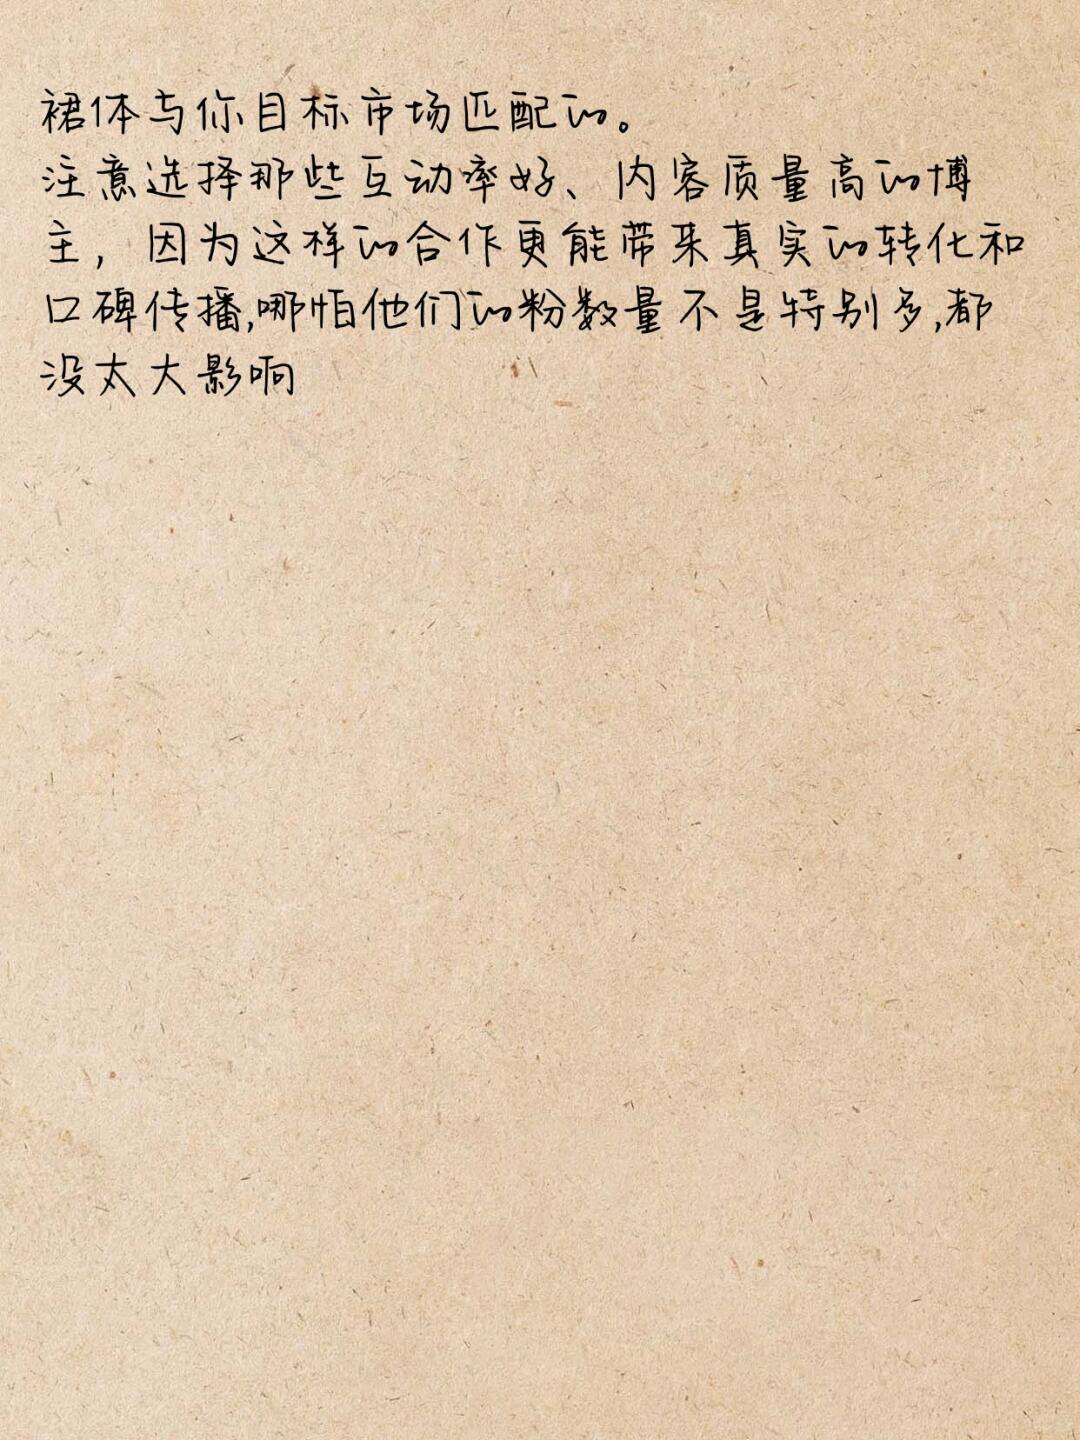 裙体与你目标市场匹配的。
注意选择那些互动率好、内容质量高的博
主，因为这样的合作更能带来真实的转化和
口碑传播,哪怕他们的粉数量不是特别多,都
没太大影响